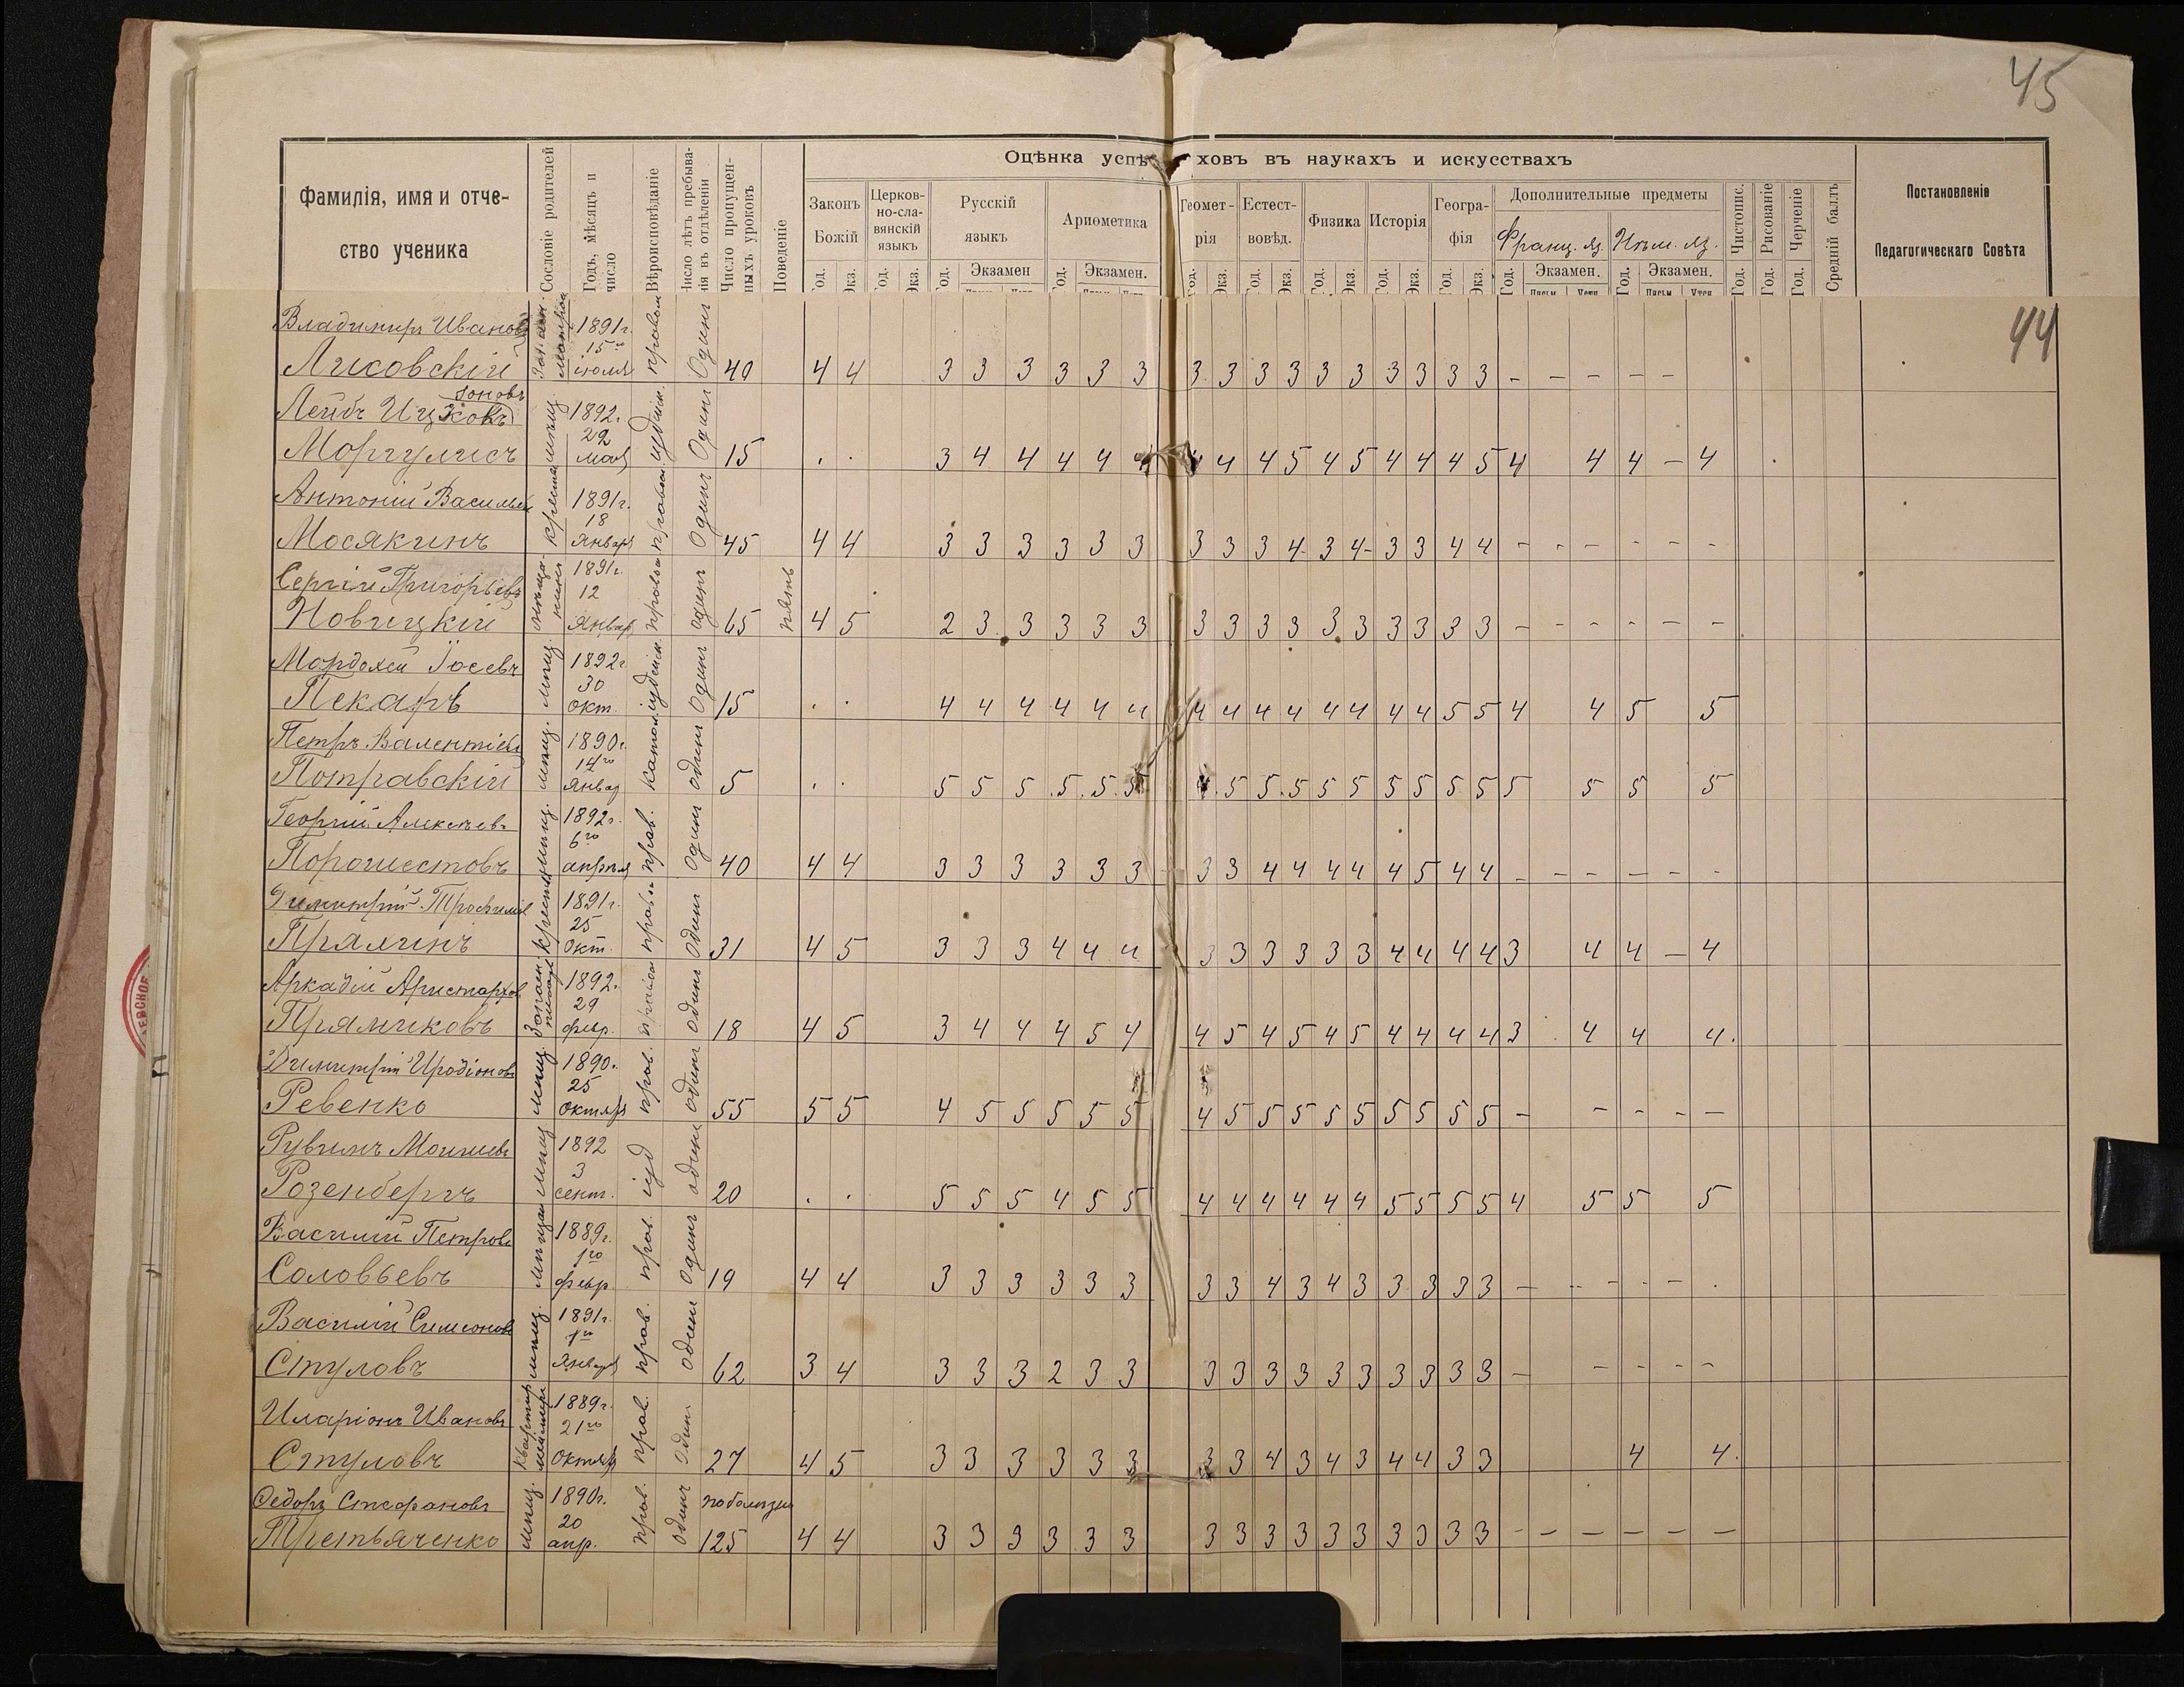 45
Оцѣнка успѣховъ въ наукахъ и искусствахъ
Фамилія, имя и отчество ученика
Сословіе родителей
Годъ, мѣсяцъ и число
Вѣроисповѣданіе
Число лѣтъ пребыванія въ отдѣленіи
Число пропущенныхъ уроковъ
Поведеніе
Законъ Божій
Церковно-славянскій языкъ
Русскій языкъ
Ариѳметика
Геометрія
Естествовѣд.
Физика
Исторія
Географія
Дополнительные предметы
Франц. яз. Нѣм. яз.
Чистопис.
Рисованіе
Черченіе
Средній баллъ
Постановленіе Педагогическаго Совѣта
Год. Экз. Год. Экз. Год. Экзамен Год. Экзамен. Год. Экз. Год. Экз. Год. Экз. Год. Экз. Год. Экз. Год. Экзамен. Год. Экзамен. Год. Год. Год.
44
Владимиръ Ивановъ 1891г.
15го
Лисовскій іюля Одинъ 40 4 4 3 3 3 3 3 3 3 3 3 3 3 3 3 3 3 3 – – – – –
зоновъ
Лейбъ 1892г.
29
Моргулисъ мая мѣщ. іудейск. Одинъ 15 . . 3 4 4 4 4 4 4 4 4 5 4 5 4 4 4 5 4 4 4 – 4
Антоній Васильев 1891г.
18
Мосякинъ Января Одинъ 45 4 4 3 3 3 3 3 3 3 3 3 4 3 4 3 3 4 4 – – – – – –
Сергій Григорьевъ 1891г.
12
Новицкій Январ одинъ 65 4 5 2 3 3 3 3 3 3 3 3 3 3 3 3 3 3 3 – – – – – –
Мордохей Іосевъ 1892г
30
Пекарь мѣщ. окт. іудейск. Одинъ 15 . . 4 4 4 4 4 4 4 4 4 4 4 4 4 4 5 5 4 4 5 5
Петръ Валентіевъ 1890г.
14го
Потравскій мѣщ. Январ Катол. одинъ 5 . . 5 5 5 5 5 5 4 5 5 5 5 5 5 5 5 5 5 5 5 5
Георгій Алексѣевъ 1892г.
6го
апрѣля мѣщ. прав. Один 40 4 4 3 3 3 3 3 3 3 3 4 4 4 4 4 5 4 4 – – – – – –
Димитрій 1891г.
25
Прялинъ Окт. одинъ 31 4 5 3 3 3 4 4 4 3 3 3 3 3 3 4 4 4 4 3 4 4 – 4
Аркадій Аристархов 1892г.
29
Прямиковъ февр. одинъ 18 4 5 3 4 4 4 5 4 4 5 4 5 4 5 4 4 4 4 3 4 4 4.
Димитрій Иродіоновъ 1890г.
25
Ревенко мѣщ. октября прав. одинъ 55 5 5 4 5 5 5 5 5 4 5 5 5 5 5 5 5 5 5 – – – – –
Рувинъ 1892
3
Розенбергъ мѣщ сент. іуд один 20 . . 5 5 5 4 5 5 4 4 4 4 4 4 5 5 5 5 4 5 5 5
Василій Петровъ 1889г.
1го
Соловьевъ февр. прав. одинъ 19 4 4 3 3 3 3 3 3 3 3 4 3 4 3 3 3 3 3 – – – – –
Василій Симеоновъ 1891г.
1го
Стуловъ мѣщ. Января прав. один 62 3 4 3 3 3 2 3 3 3 3 3 3 3 3 3 3 3 3 – – – – –
Иларіонъ Ивановъ 1889г.
21го
Стуловъ Октября прав. один 27 4 5 3 3 3 3 3 3 3 3 4 3 4 3 4 4 3 3 4 4.
Ѳедоръ Стефановъ 1890г. по болѣзни
20
Третьяченко мѣщ. апр. прав. Одинъ 125 4 4 3 3 3 3 3 3 3 3 3 3 3 3 3 3 3 3 – – – – – –